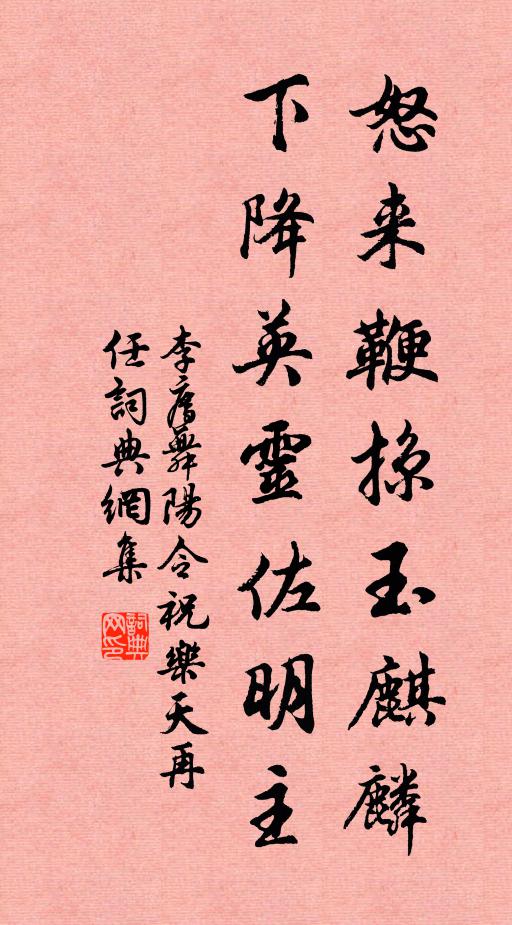 怒来鞭掠玉麒麟
下降英靈佐明主
李廌舞陽令祝樂天再
任詞典網集
詞典网印